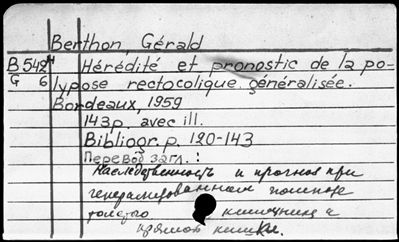 Berthon, Gérald
B 542 Hérédité et pronostic de la po-
G 6 lypose rectocolique généralisée.
Bordeaux, 1959
143p. avec ill.
Bibliogr. p. 120-143
Перевод загл.:
Наследственность и прогноз при
генерализованном полипозе
толстого кишечника и
прямой кишки.